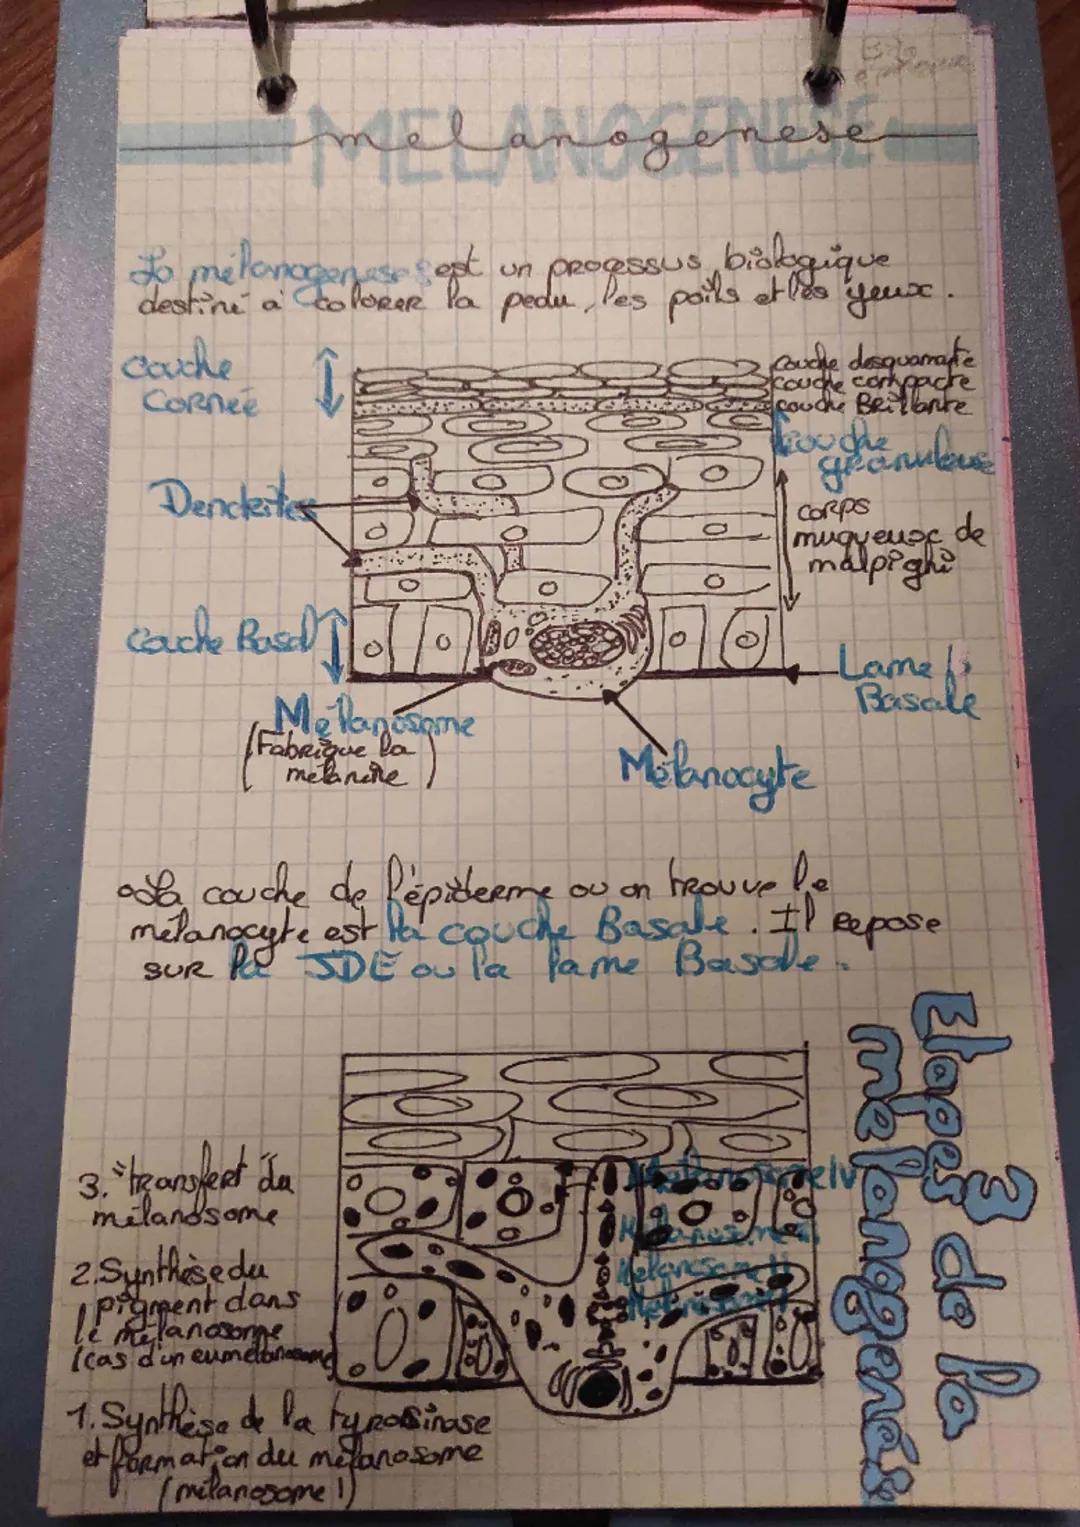 Bio
MELANOGENESE
melanogenese
La mélanogenese est un processus biologique
destiné à colorer la peau, les poils et les yeux.
couche
cornée
couche desquamante
couche compacte
couche Brillante
couche
granuleuse
Dendrites
corps
muqueux de
malpighi
couche Basal
Lame
Basale
Mélanosome
(Fabrique la
mélanine)
Mélanocyte
La couche de l'épiderme ou on trouve le
mélanocyte est la couche Basale. Il repose
sur la JDE ou la lame Basale.
Etapes de la
mélanogenése
3
3. transfert du
mélanosome
Mélanosome IV
Mélanosome III
Mélanosome II
Mélanosome I
2. Synthèse du
pigment dans
le mélanosome
(cas d'un eumélanosome)
1. Synthèse de la tyrosinase
et formation du mélanosome
(mélanosome I)